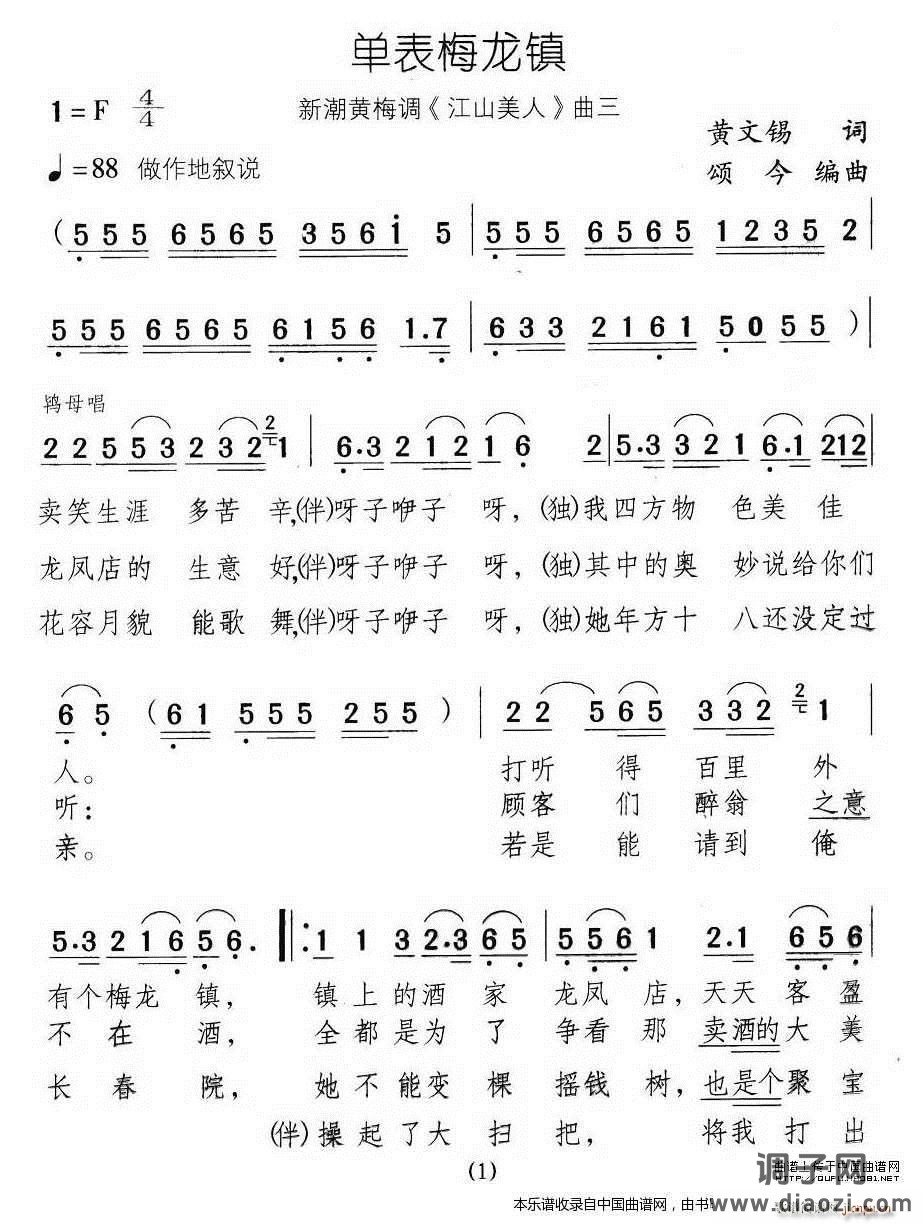 单表梅龙镇
1=F 4/4
新潮黄梅调《江山美人》曲三
黄文锡 词
♩=88 做作地叙说
颂今 编曲
(5555 6565 356i 5 | 555 6565 1235 2 |
555 6565 6156 1.7 | 633 2161 5055 ) |
鸨母唱
2 2 5 5 3 2 3 2 2 1 | 6.3 2 1 2 1 6 2 | 5.3 3 2 1 6.1 212
卖笑生涯 多苦 辛,(伴)呀子咿子 呀,(独)我四方物 色美 佳
龙凤店的 生意 好,(伴)呀子咿子 呀,(独)其中的奥 妙说给你们
花容月貌 能歌 舞,(伴)呀子咿子 呀,(独)她年方十 八还没定过
6 5 (61 555 255 ) | 22 565 332 2 1
人。 打听 得 百里 外
听: 顾客 们 醉翁 之意
亲。 若是 能 请到 俺
5.3 216 5 6. ‖: 1 1 3 2.3 6 5 | 5 5 6 1 2.1 6 5 6
有个梅龙 镇, 镇上的酒 家 龙凤 店,天天 客 盈
不 在 酒, 全都是为 了 争看 那 卖酒的大 美
长 春 院, 她不能变 棵 摇钱 树,也是个聚 宝
(伴)操起了大 扫 把, 将我 打 出
(1)
曲谱上传于中国曲谱网
本乐谱收录自中国曲谱网,由书
调子网
www.diaozi.com